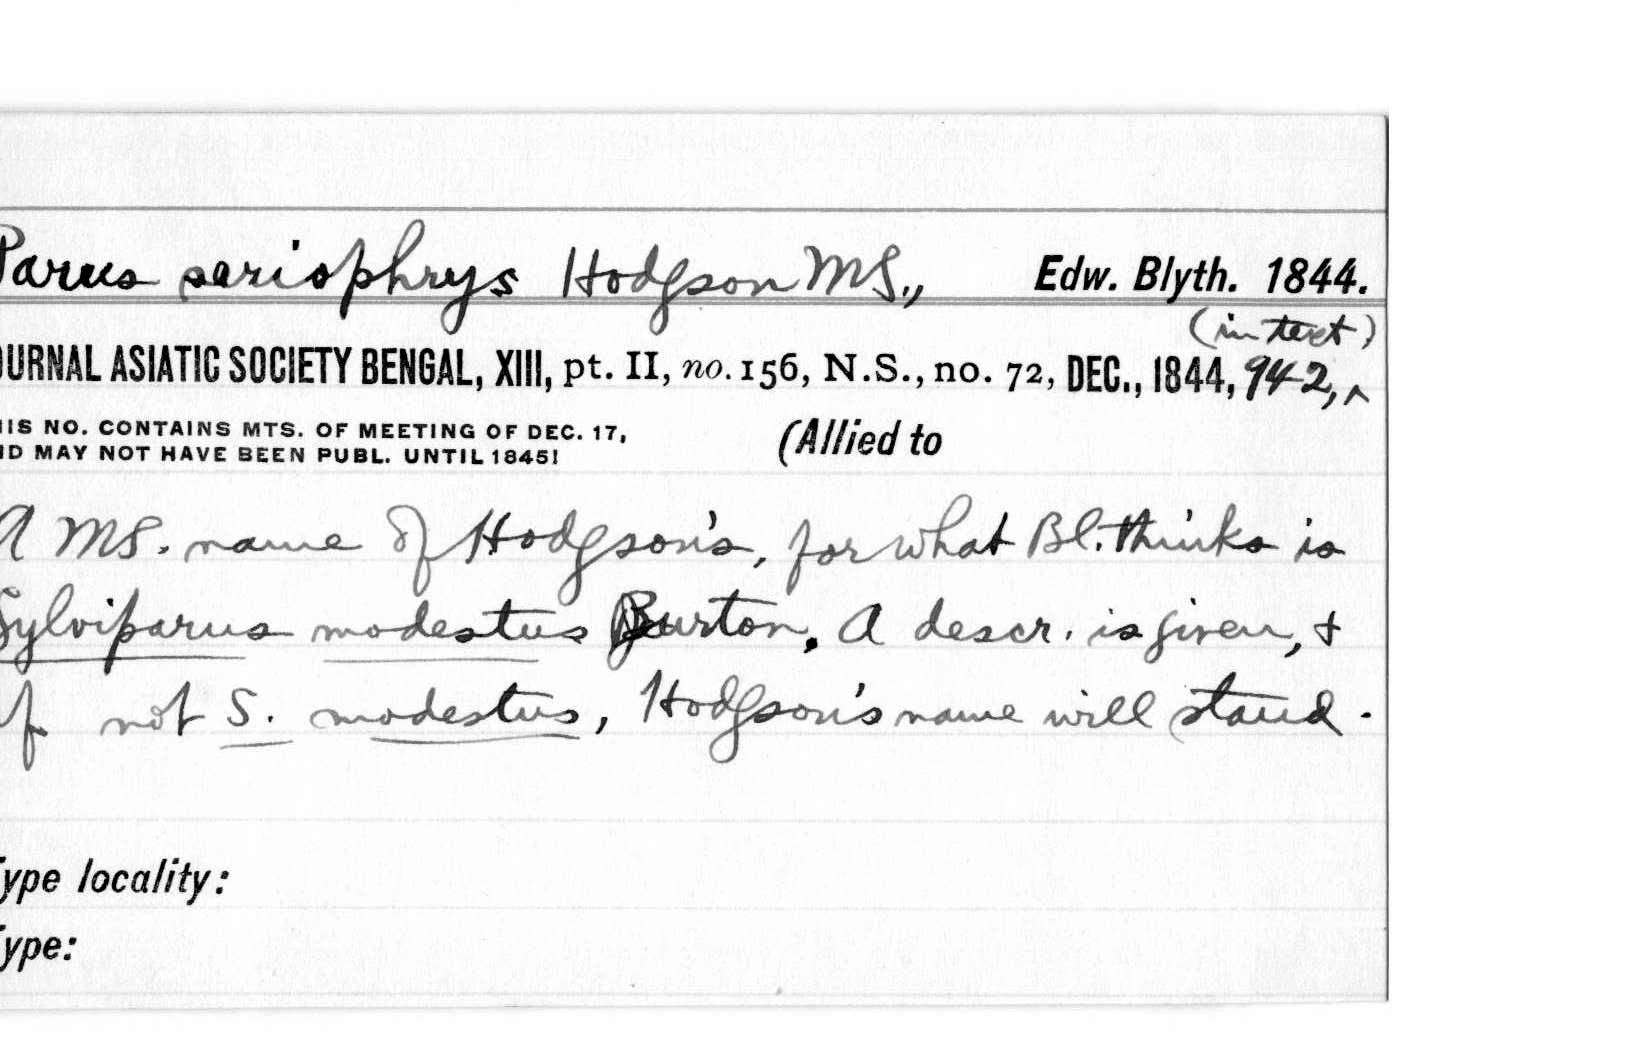 Parus seriophrys Hodgson MS., Edw. Blyth. 1844.
(in text)
OURNAL ASIATIC SOCIETY BENGAL, XIII, pt. II, no. 156, N.S., no. 72, DEC., 1844, 942, ^
HIS NO. CONTAINS MTS. OF MEETING OF DEC. 17,
ND MAY NOT HAVE BEEN PUBL. UNTIL 1845!
(Allied to
A MS. name of Hodgson's, for what Bl. thinks is
Sylviparus modestus Burton. A descr. is given, &
if not S. modestus, Hodgson's name will stand.
Type locality:
Type: